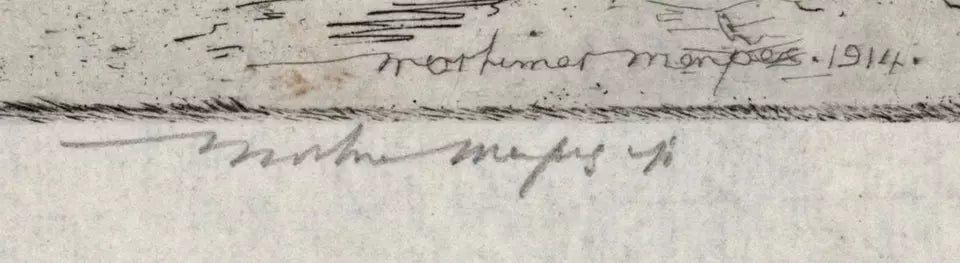 mortimer menpes. 1914.
Mortimer Menpes